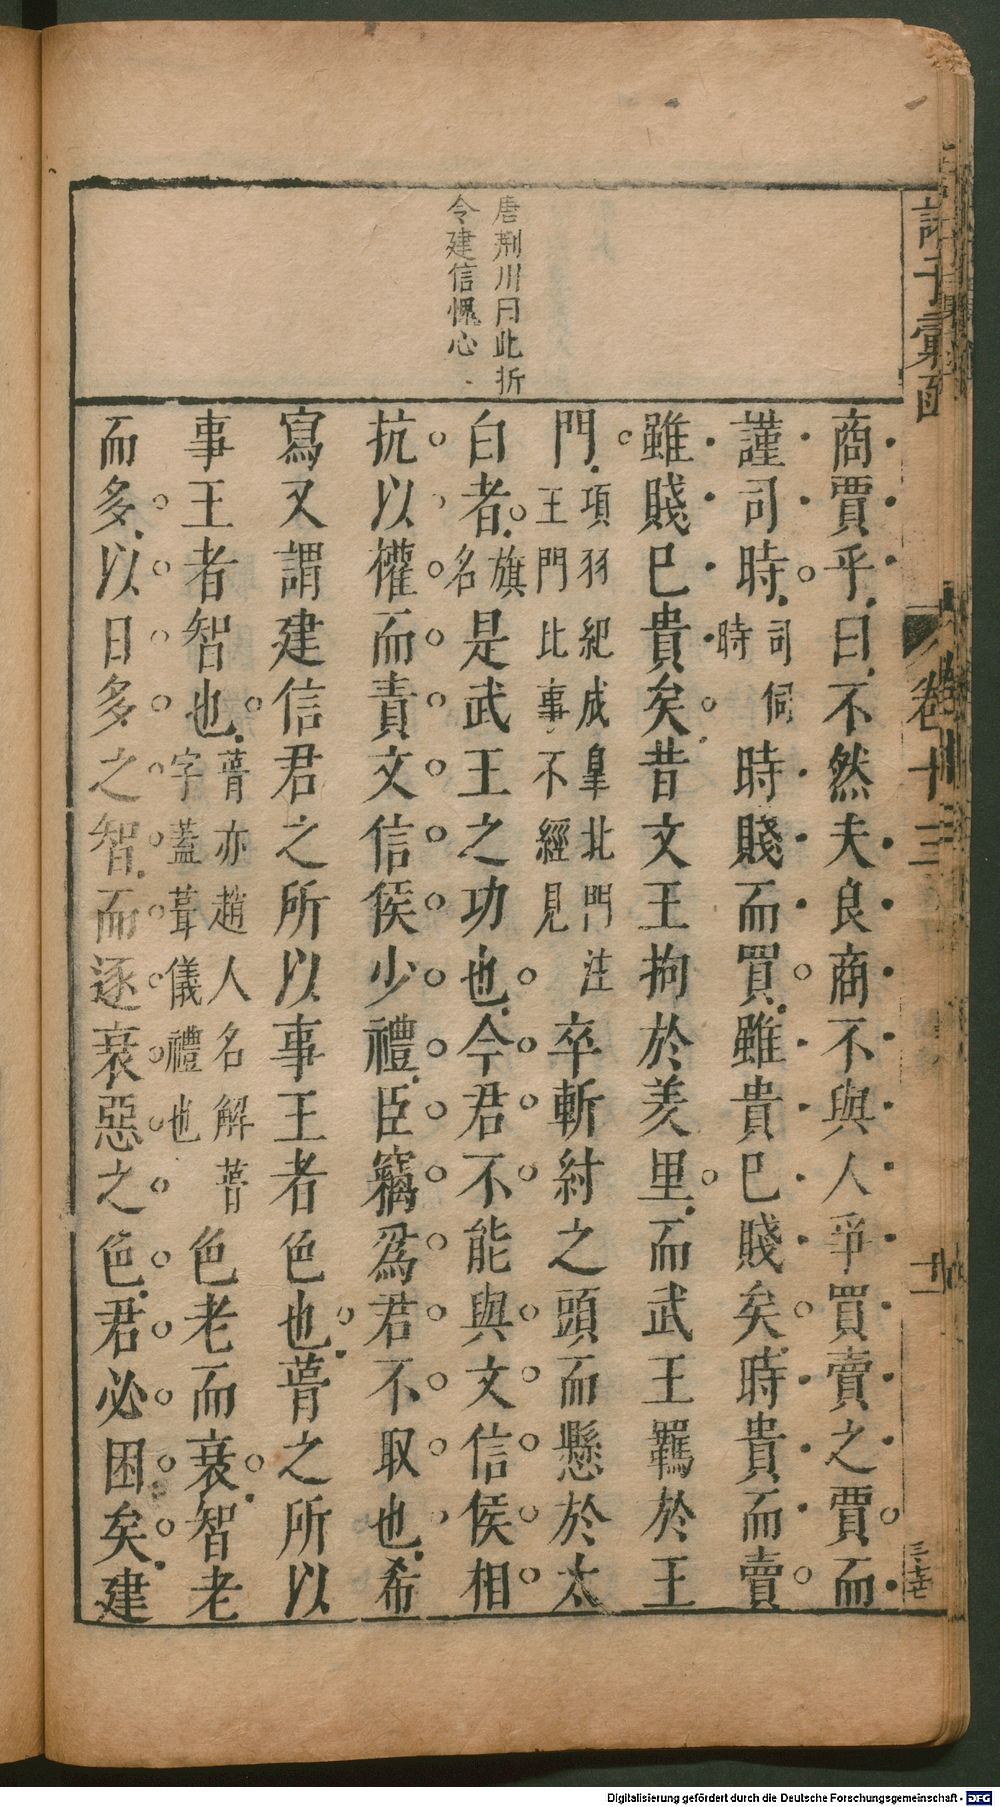 唐荊川曰此折
令建信愧心
商賈乎曰不然夫良商不與人爭買賣之賈而
謹司時司伺時時賤而買雖貴巳賤矣時貴而賣
雖賤巳貴矣昔文王拘於羑里而武王羈於王
門項羽紀成皐北門注王門比事不經見卒斬紂之頭而懸於太
白者旗名是武王之功也今君不能與文信侯相
抗以權而責文信侯少禮臣竊爲君不取也希
寫又謂建信君之所以事王者色也葺之所以
事王者智也葺亦趙人名解葺字蓋葺儀禮也色老而衰智老
而多以日多之智而逐衰惡之色君必困矣建
諸子彙函
卷十三
十一
Digitalisierung gefördert durch die Deutsche Forschungsgemeinschaft - DFG